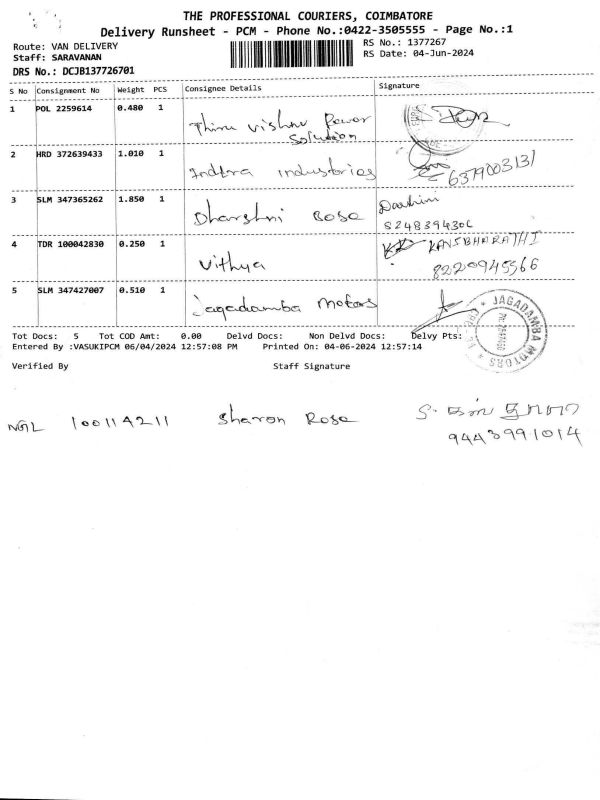 THE PROFESSIONAL COURIERS, COIMBATORE
Delivery Runsheet - PCM - Phone No.:0422-3505555 - Page No.:1
Route: VAN DELIVERY
RS No.: 1377267
Staff: SARAVANAN
RS Date: 04-Jun-2024
DRS No.: DCJB137726701
S No Consignment No Weight PCS Consignee Details Signature
1 POL 2259614 0.480 1 Thiru Vishnu Power
Solution
2 HRD 372639433 1.010 1 Indhra Industries
6379003131
3 SLM 347365262 1.850 1 Dharshni Bose Darshini
824839430
4 TDR 100042830 0.250 1 Vithya KANIBHARATHI
8220945566
5 SLM 347427007 0.510 1 Jagadamba Motors
JAGADAMBA MOTORS
Tot Docs: 5 Tot COD Amt: 0.00 Delvd Docs: Non Delvd Docs: Delvy Pts:
Entered By :VASUKIPCM 06/04/2024 12:57:08 PM Printed On: 04-06-2024 12:57:14
Verified By Staff Signature
NGL 100114211 Sharon Rose
9443991014